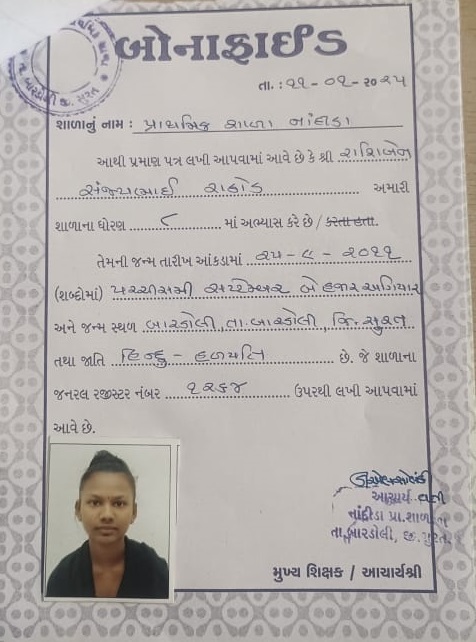 બોનાફાઈડ
તા. : ૨૨-૦૨-૨૦૨૫
શાળાનું નામ : પ્રાથમિક શાળા નાંદીડા
આથી પ્રમાણ પત્ર લખી આપવામાં આવે છે કે શ્રી રાશિબેન
સંજયભાઈ રાઠોડ અમારી
શાળાના ધોરણ ૮ માં અભ્યાસ કરે છે / કરતા હતા.
તેમની જન્મ તારીખ આંકડામાં ૨૫-૯-૨૦૧૧
(શબ્દોમાં) પચ્ચીસમી સપ્ટેમ્બર બે હજાર અગિયાર
અને જન્મ સ્થળ બારડોલી, તા. બારડોલી, જિ. સુરત
તથા જાતિ હિન્દુ - હળપતિ છે. જે શાળાના
જનરલ રજીસ્ટર નંબર ૧૨૬૪ ઉપરથી લખી આપવામાં
આવે છે.
આચાર્ય વતી
નાંદીડા પ્રા. શાળા
તા. બારડોલી, જી. સુરત
મુખ્ય શિક્ષક / આચાર્યશ્રી